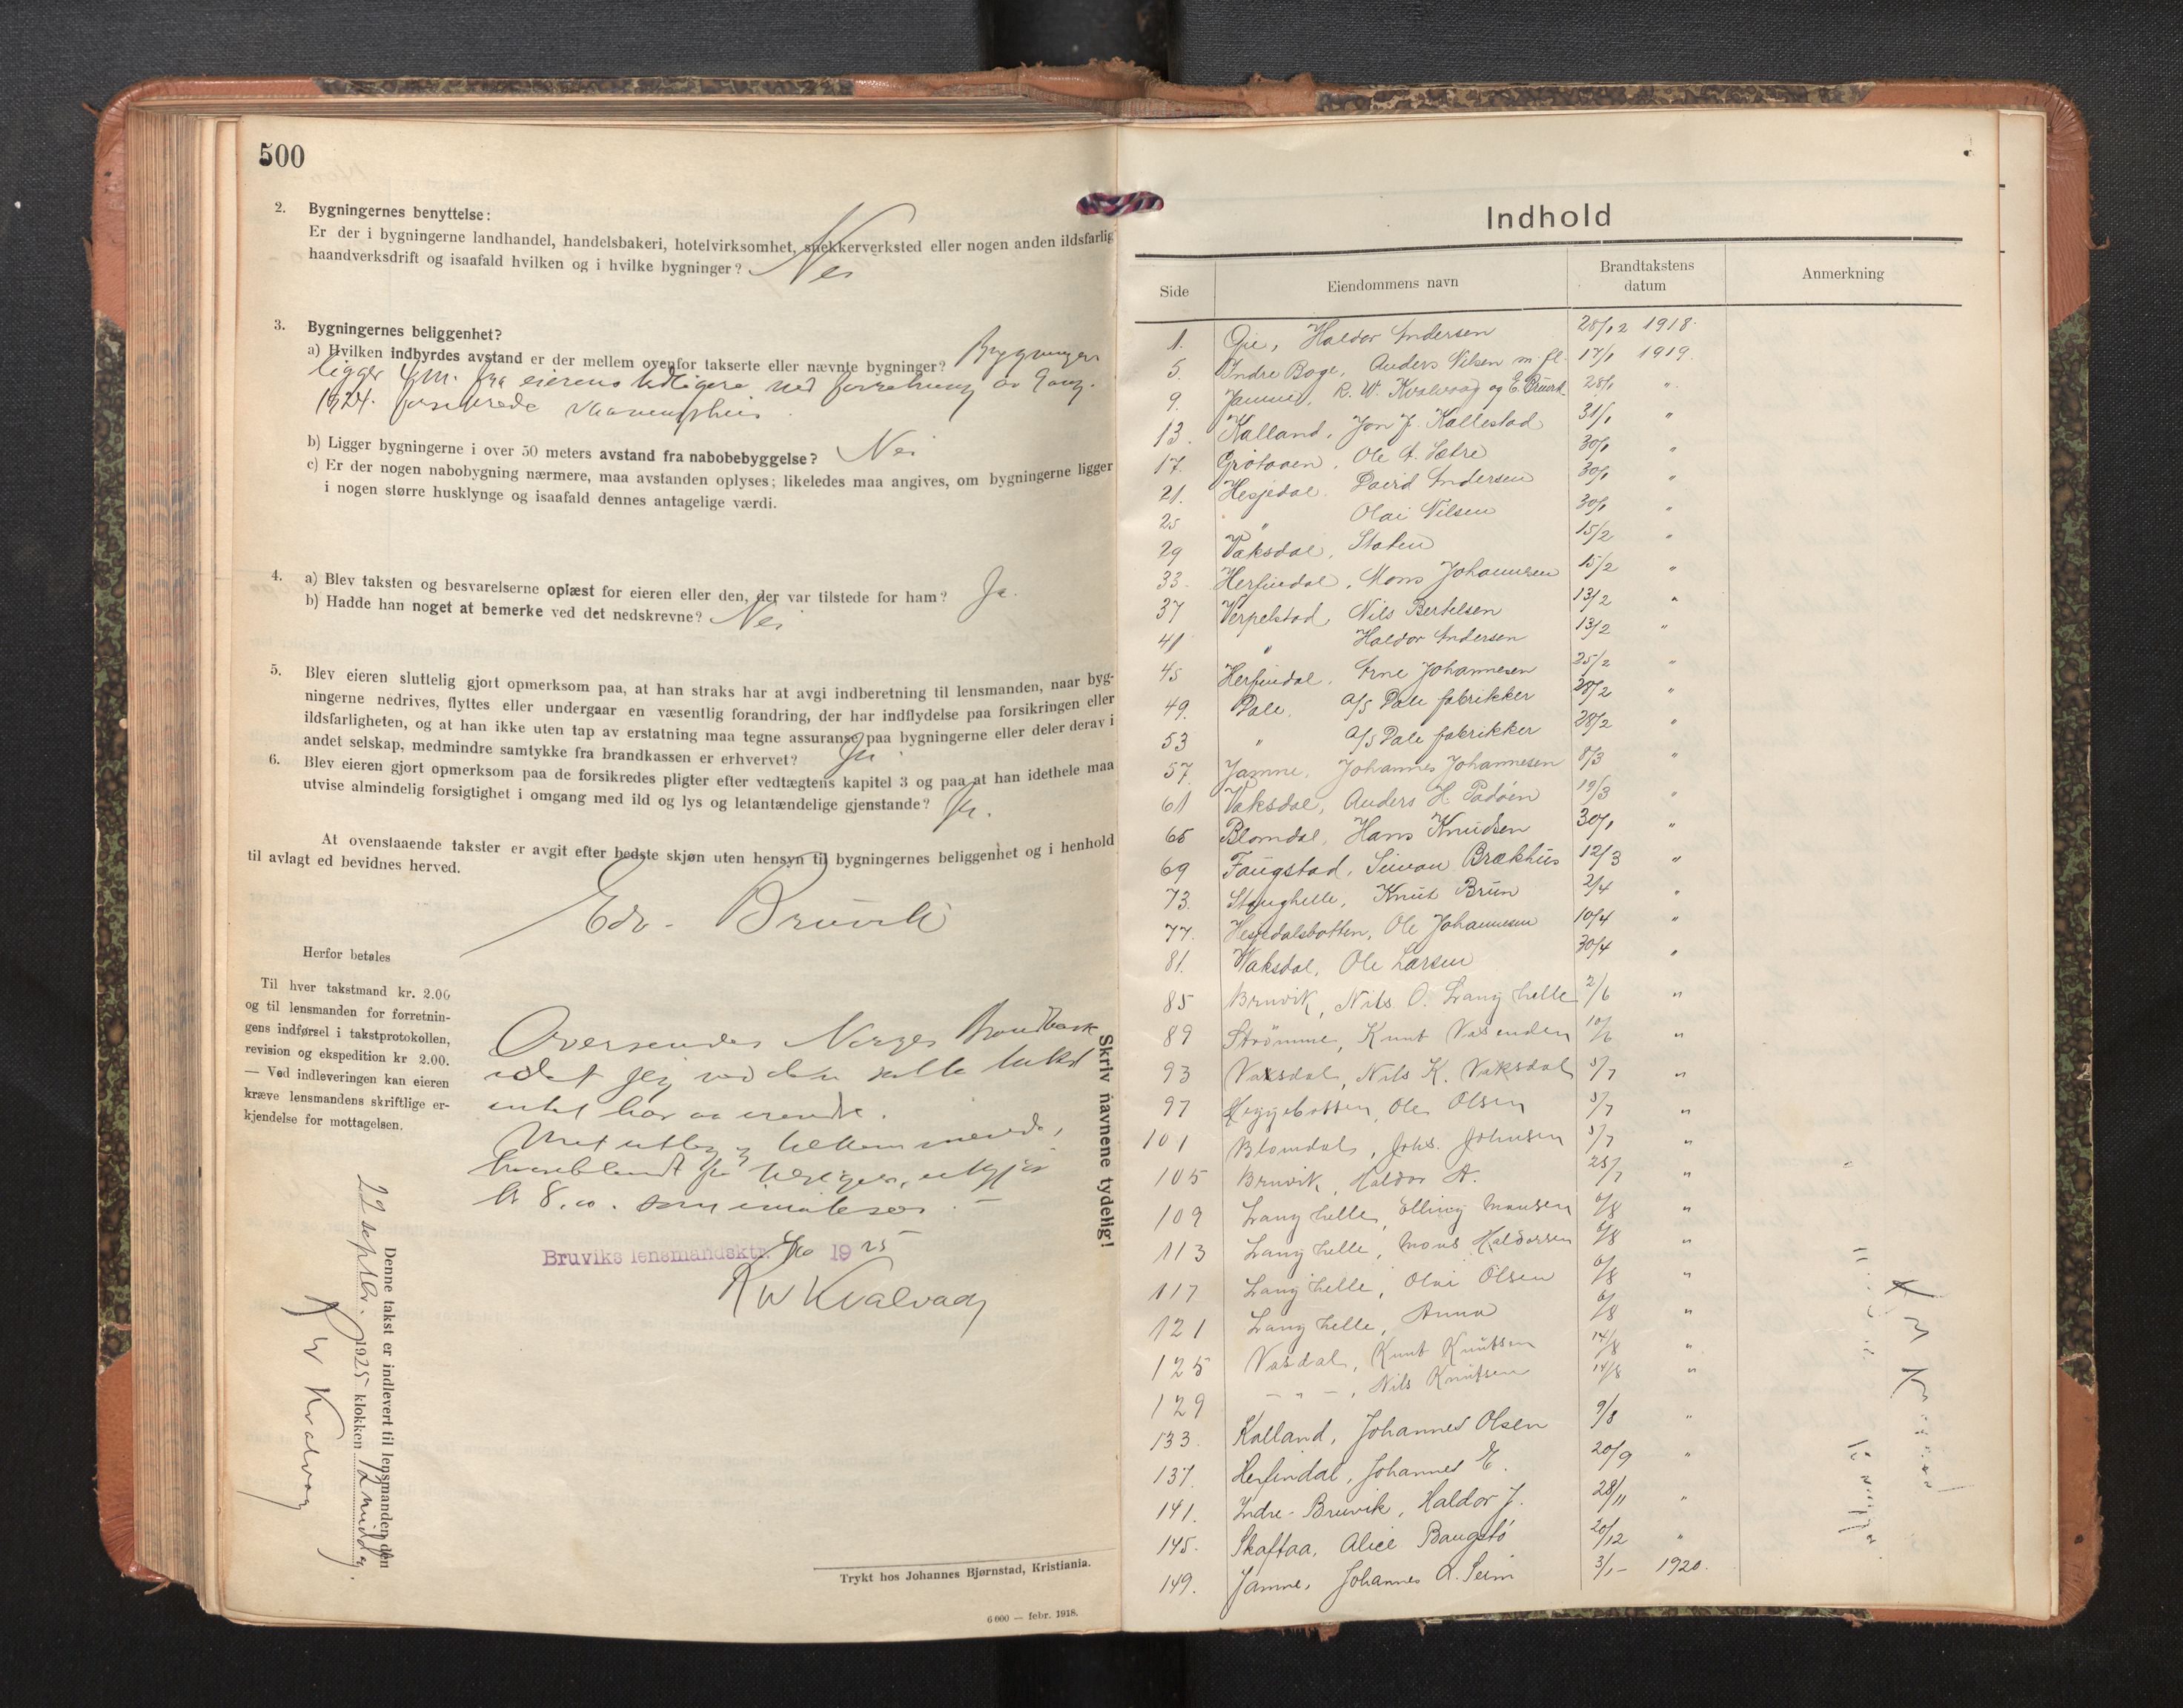 500
2. Bygningernes benyttelse:
Er der i bygningerne landhandel, handelsbakeri, hotelvirksomhet, snekkerverksted eller nogen anden ildsfarlig
haandverksdrift og isaafald hvilken og i hvilke bygninger? Nei
3. Bygningernes beliggenhet?
a) Hvilken indbyrdes avstand er der mellem ovenfor takserte eller nævnte bygninger? Bygningen
ligger 4 m. fra eierens tidligere ved forretning av
1924. forsikrede vaaningshus.
b) Ligger bygningerne i over 50 meters avstand fra nabobebyggelse? Nei
c) Er der nogen nabobygning nærmere, maa avstanden oplyses; likeledes maa angives, om bygningerne ligger
i nogen større husklynge og isaafald dennes antagelige værdi.
4. a) Blev taksten og besvarelserne oplæst for eieren eller den, der var tilstede for ham? Ja.
b) Hadde han noget at bemerke ved det nedskrevne? Nei
5. Blev eieren sluttelig gjort opmerksom paa, at han straks har at avgi indberetning til lensmanden, naar byg-
ningerne nedrives, flyttes eller undergaar en væsentlig forandring, der har indflydelse paa forsikringen eller
ildsfarligheten, og at han ikke uten tap av erstatning maa tegne assuranse paa bygningerne eller deler derav i
andet selskap, medmindre samtykke fra brandkassen er erhvervet? Ja
6. Blev eieren gjort opmerksom paa de forsikredes pligter efter vedtægtens kapitel 3 og paa at han idethele maa
utvise almindelig forsigtighet i omgang med ild og lys og letantændelige gjenstande? Ja.
At ovenstaaende takster er avgit efter bedste skjøn uten hensyn til bygningernes beliggenhet og i henhold
til avlagt ed bevidnes herved.
Edv. Bruvik
Herfor betales
Til hver takstmand kr. 2.00
og til lensmanden for forretnin-
gens indførsel i takstprotokollen,
revision og ekspedition kr 2.00.
— Ved indleveringen kan eieren
kræve lensmandens skriftlige er-
kjendelse for mottagelsen.
Oversendes Norges Brandkasse
idet jeg ved den satte takst
intet har at erindre.
kr 8.00.
Bruviks lensmandsktr. 1925
R W Kvalvaag
Denne takst er indlevert til lensmanden den
22 septbr. 1925 klokken 12 middag.
R W Kvalvaag
Trykt hos Johannes Bjørnstad, Kristiania.
6 000 — febr. 1918.
Skriv navnene tydelig!
Indhold
Side Eiendommens navn Brandtakstens datum Anmerkning
1. Øie, Haldor Andersen 28/12 1918.
5. Indre Boge, Anders Nilsen m. fl. 17/1 1919.
9. Jamne, R. W. Kvalvaag og E. Bruvik 28/1 "
13. Kalland, Jon J. Kallestad 31/1 "
17. Grøtaaen, Ole A. Sætre 30/1 "
21. Hesjedal. David Andersen 30/1 "
25 " Olai Nilsen 30/1 "
29 Vaksdal, Staten 15/2 "
33. Herfindal, Mons Johannesen 15/2 "
37 Verpelstad, Nils Bertelsen 13/2 "
41 " Haldor Andersen 13/2 "
45 Herfindal, Arne Johannesen 25/2 "
49. Dale, A/S Dale fabrikker 28/2 "
53 " A/S Dale fabrikker 28/2 "
57. Jamne, Johannes Johannesen 8/3 "
61 Vaksdal, Anders H. Padøen 19/3 "
65 Blomdal, Hans Knudsen 30/1 "
69 Faugstad, Simon Brækhus 12/3 "
73. Stanghelle, Knut Brun 2/4 "
77. Hesjedalsbotten, Ole Johannesen 10/4 "
81. Vaksdal, Ole Larsen 30/4 "
85 Bruvik, Nils O. Langhelle 2/6 "
89 Strömme, Knut Vasenden 10/6 "
93 Vaksdal, Nils K. Vaksdal 5/7 "
97 Heggebotten, Ole Olsen 5/7 "
101 Blomdal, Johs. Johnsen 5/7 "
105 Bruvik, Haldor A. 25/7 "
109 Langhelle, Elling Monsen 6/8 "
113 Langhelle, Mons Haldorsen 6/8 "
117 Langhelle, Olai Olsen 6/8 "
121 Langhelle, Anna 6/8 "
125 Vasdal, Knut Knutsen 14/8 "
129 - " -, Nils Knutsen 14/8 "
133. Kalland, Johannes Olsen 9/8 "
137. Herfindal, Johannes E. 20/9 "
141. Indre-Bruvik, Haldor J. 28/11 "
145. Skaftaa, Alice Baugstø 20/12 "
149. Jamne, Johannes A. Seim 3/1- 1920.